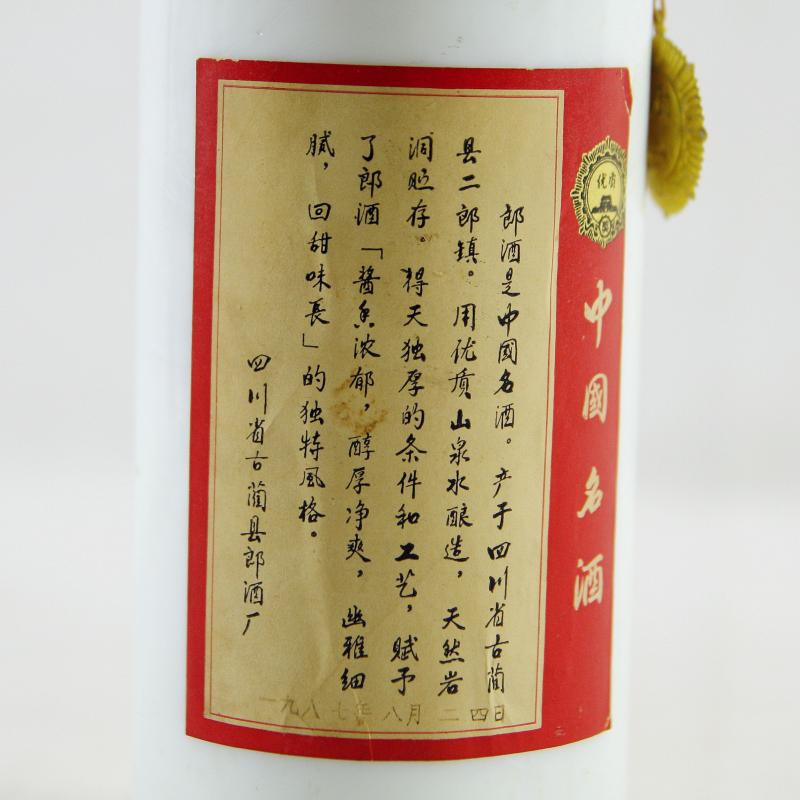 优质
中國名酒
郎酒是中國名酒。产于四川省古蔺
县二郎镇。用优质山泉水酿造，天然岩
洞贮存。得天独厚的条件和工艺，赋予
了郎酒「酱香浓郁，醇厚净爽，幽雅细
腻，回甜味長」的独特风格。
四川省古蔺县郎酒厂
一九八七年八月二四日